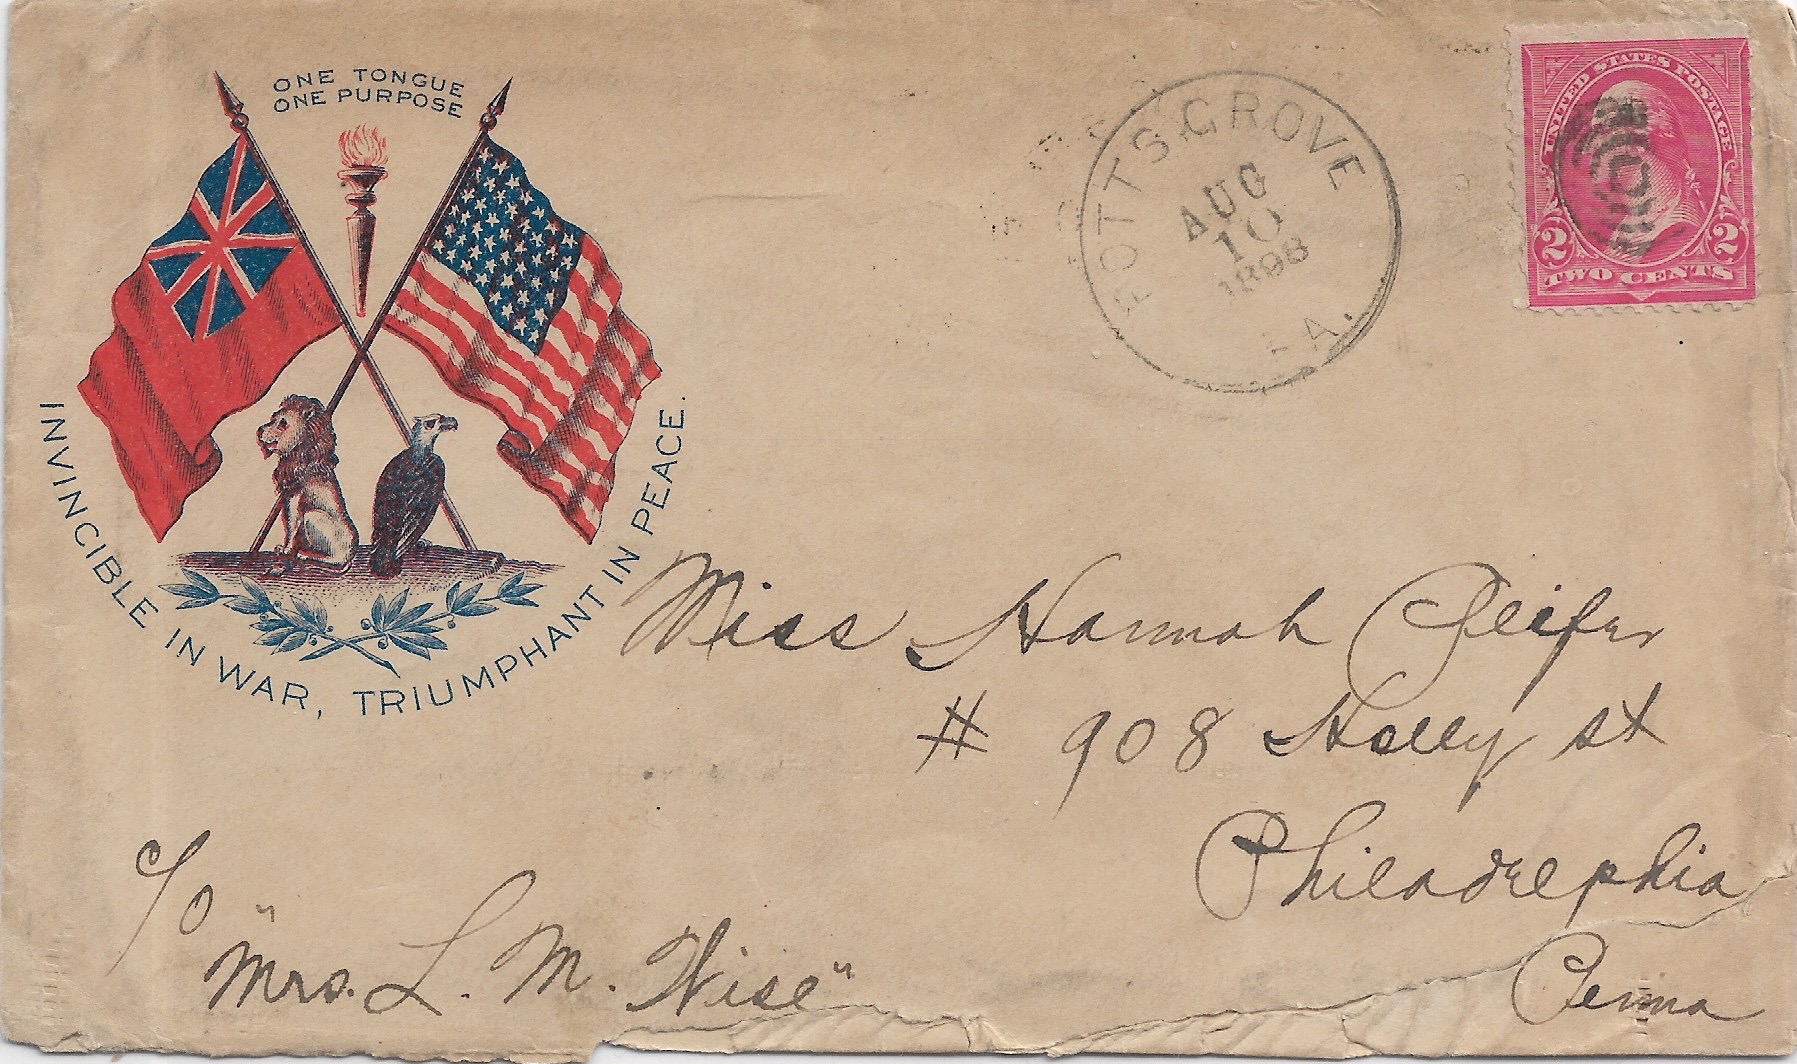 ONE TONGUE
ONE PURPOSE
INVINCIBLE IN WAR, TRIUMPHANT IN PEACE.
POTTSGROVE
AUG
10
1898
PA.
UNITED STATES POSTAGE
2 2
TWO CENTS
Miss Hannah
# 908 Holly st
Philadelphia
Penna
c/o
"Mrs. L. M. Wise"